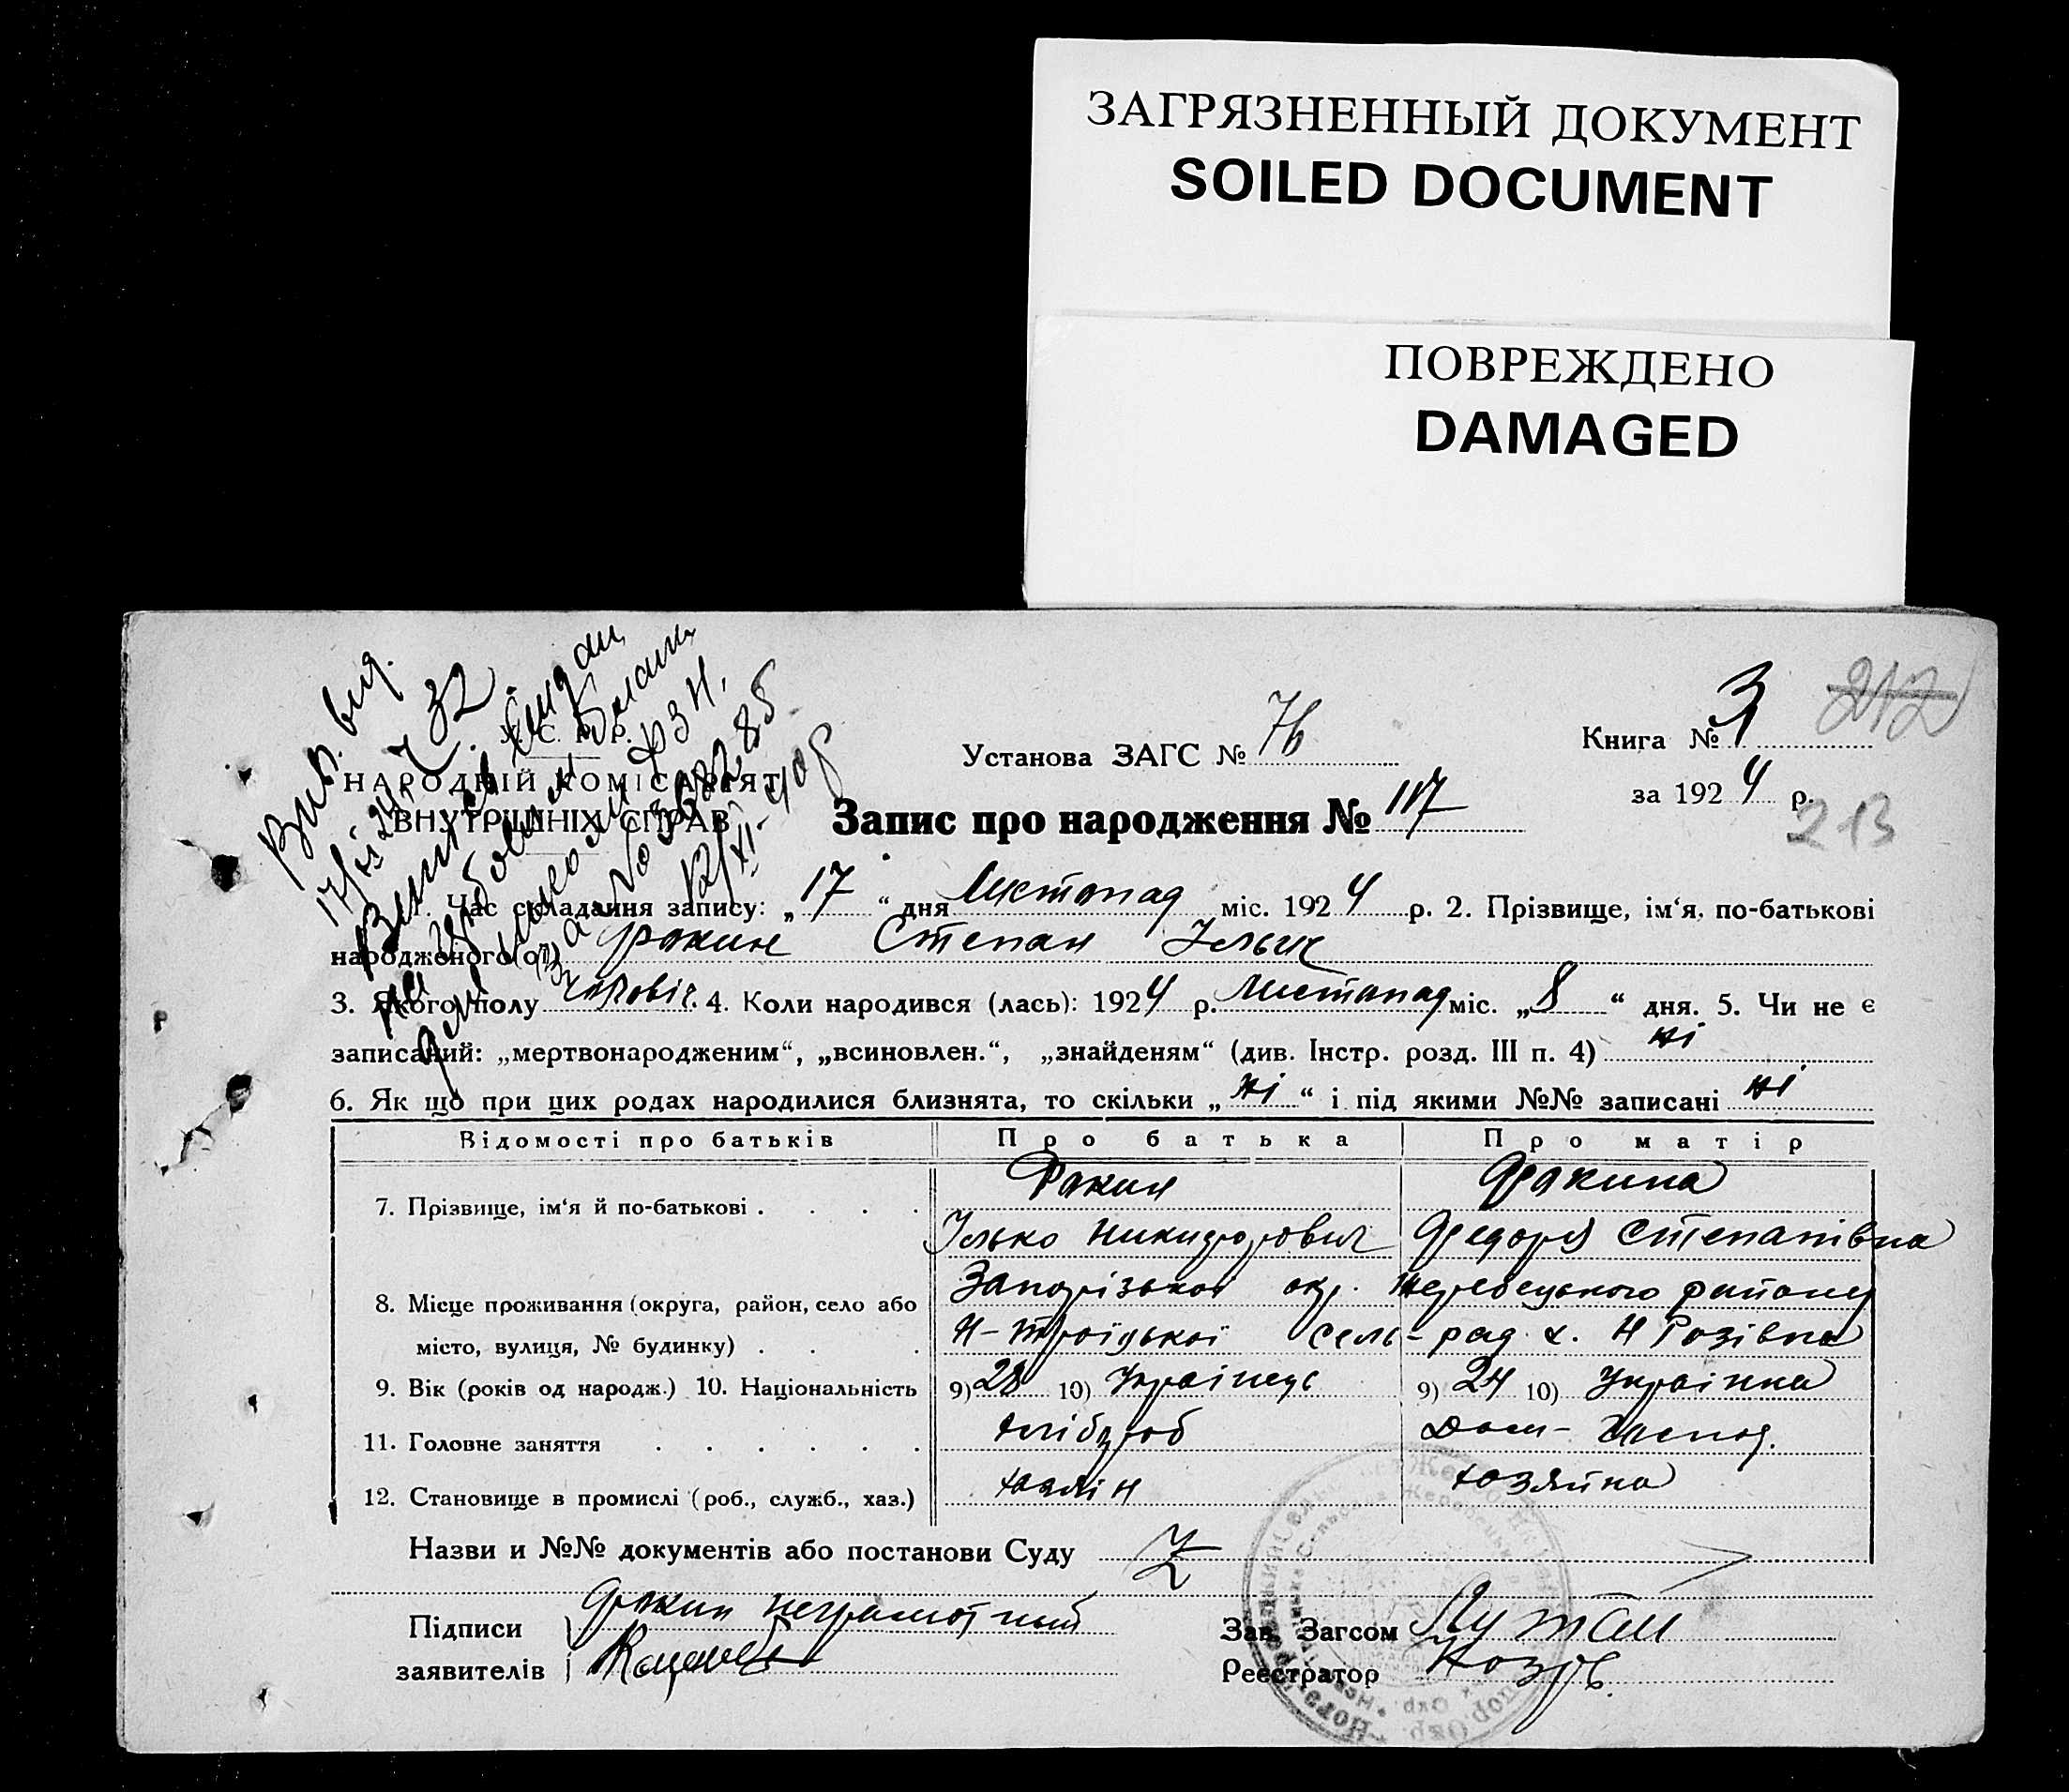 ЗАГРЯЗНЕННЫЙ ДОКУМЕНТ
SOILED DOCUMENT
ПОВРЕЖДЕНО
DAMAGED
Вип. вид.
У. С. Р. Р.
НАРОДНІЙ КОМІСАРІЯТ
ВНУТРІШНІХ СПРАВ
Установа ЗАГС № 76
Книга № 3
212
за 1924 р.
213
Запис про народження № 117
1. Час складання запису: „17“ дня Листопад міс. 1924 р. 2. Прізвище, ім‘я, по-батькові
народженого(ої) Фокин Степан Ільич
3. Якого полу чоловіч. 4. Коли народився (лась): 1924 р. Листопад міс. „8“ дня. 5. Чи не є
записаний: „мертвонародженим“, „всиновлен.“, „знайденям“ (див. Інстр. розд. III п. 4) ні
6. Як що при цих родах народилися близнята, то скільки „ні“ і під якими №№ записані ні
Відомості про батьків Про батька Про матір
7. Прізвище, ім‘я й по-батькові . . . . Фокин Фокина
Ілько Никифорович Федора Степанівна
8. Місце проживання (округа, район, село або Запорізької окр. Жеребецького району
місто, вулиця, № будинку) . . . Н-Троїцької сель-рад. х. Н Розівка
9. Вік (років од народж.) 10. Національність 9) 28 10) Українець 9) 24 10) Українка
11. Головне заняття . . . . . . хлібороб Дом- господ.
12. Становище в промислі (роб., служб., хаз.) хазяїн хозяйка
Назви и №№ документів або постанови Суду Z
Підписи Фокин неграмотный
заявителів
Зав. Загсом
Реєстратор